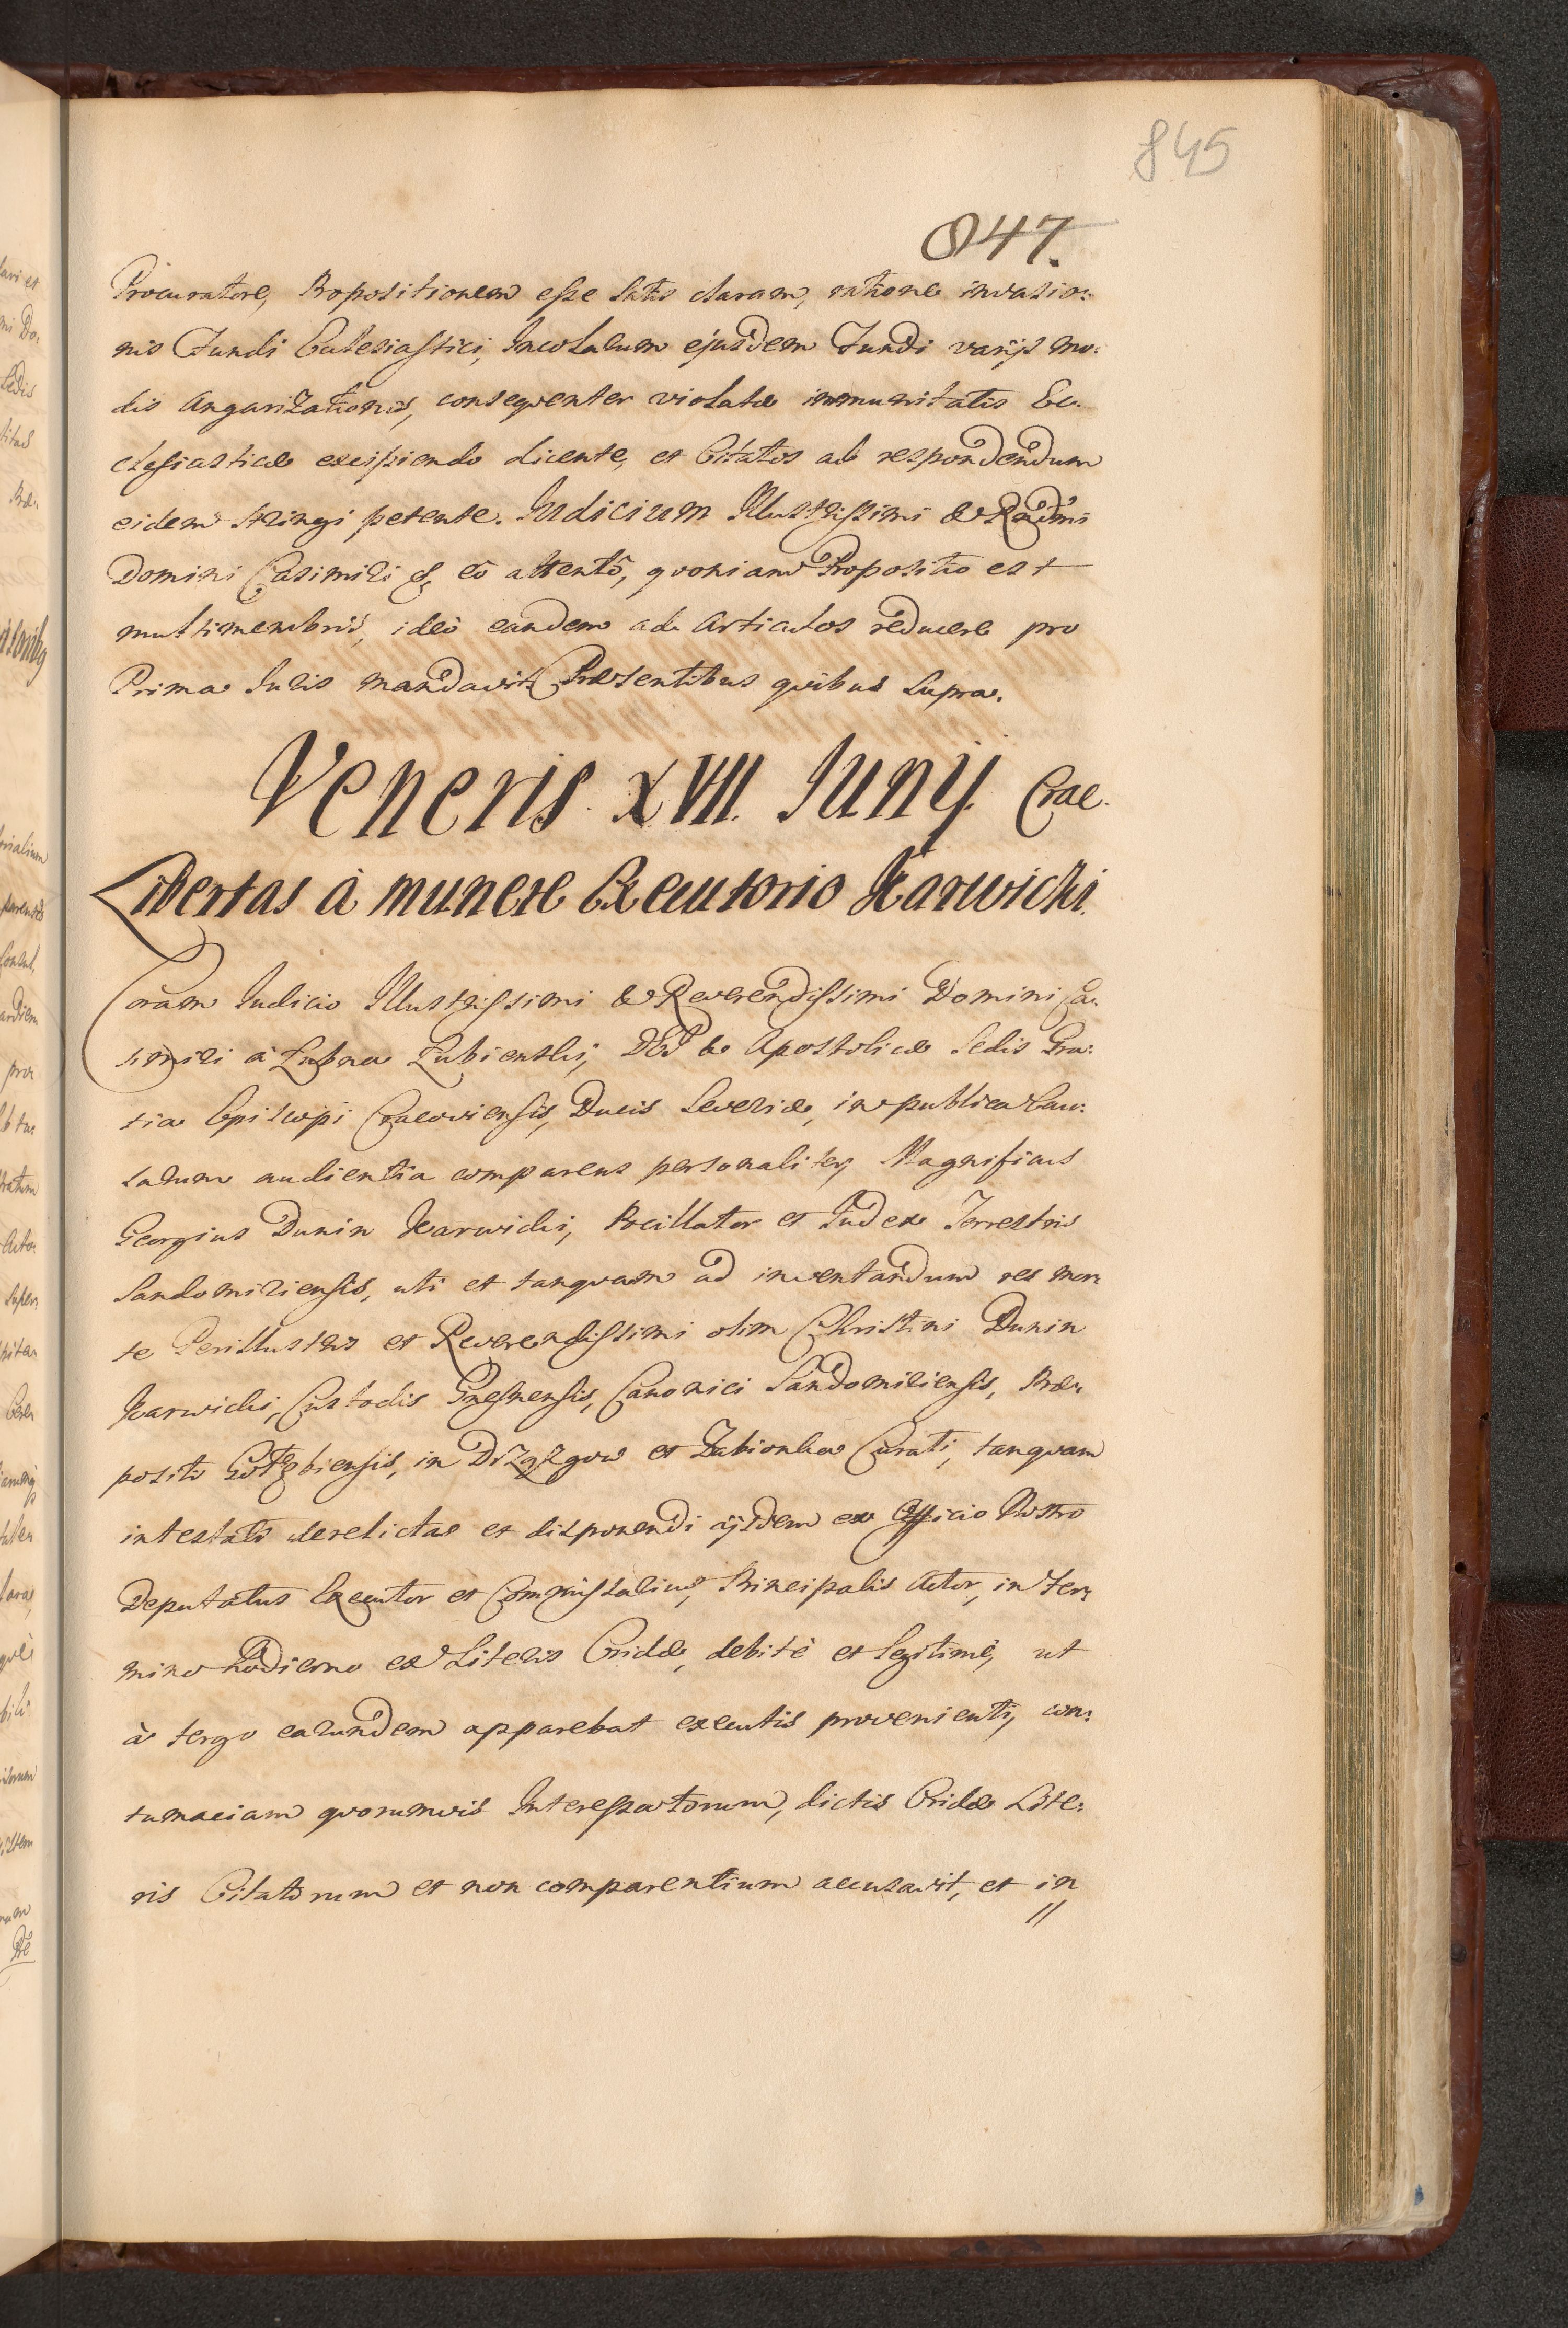 845
847.
Procuratore, Propositionem esse satis claram, ratione invasio:
nis Fundi Ecclesiastici, Incolarum ejusdem Fundi varijs mo:
dis angarizationis, consequenter violatæ immunitatis Ec:
clesiasticæ excipiendo dicente, et Citatos ad respondendum
eidem stringi petente. Iudicium Illustrissimi & Rndmi
Domini Casimiri &, eo attento, quoniam Propositio est
multimembris, ideò eandem ad Articulos reducere pro
Prima Iuris mandavit. Præsentibus quibus supra.
Veneris XVII. Iunij. Crac.
Libertas à munere Executorio Karwicki.
Coram Iudicio Illustrissimi & Reverendissimi Domini Ca:
simiri à Łubna Łubienski, DEI & Apostolicæ Sedis Gra:
tia Episcopi Cracoviensis, Ducis Severiæ, in publica Cau:
sarum audientia comparens personaliter, Magnificus
Georgius Dunin Karwicki, Pocillator et Iudex Terrestris
Sandomiriensis, uti et tanquam ad inventandum res mor:
te Perillustris et Reverendissimi olim Christini Dunin
Karwicki, Custodis Gnesnensis, Canonici Sandomiriensis, Præ:
positi in et Curati, tanquam
intestato derelictas et disponendi ijsdem ex Officio Nostro
Deputatus Executor et Commissarius, Principalis Actor, in ter:
mino hodierno ex Literis Cridæ, debitè et legitimè, ut
à tergo earundem apparebat executis provenienti, con:
tumaciam quorumvis Interessatorum, dictis Cridæ Lite:
ris Citatorum et non comparentium accusavit, et in